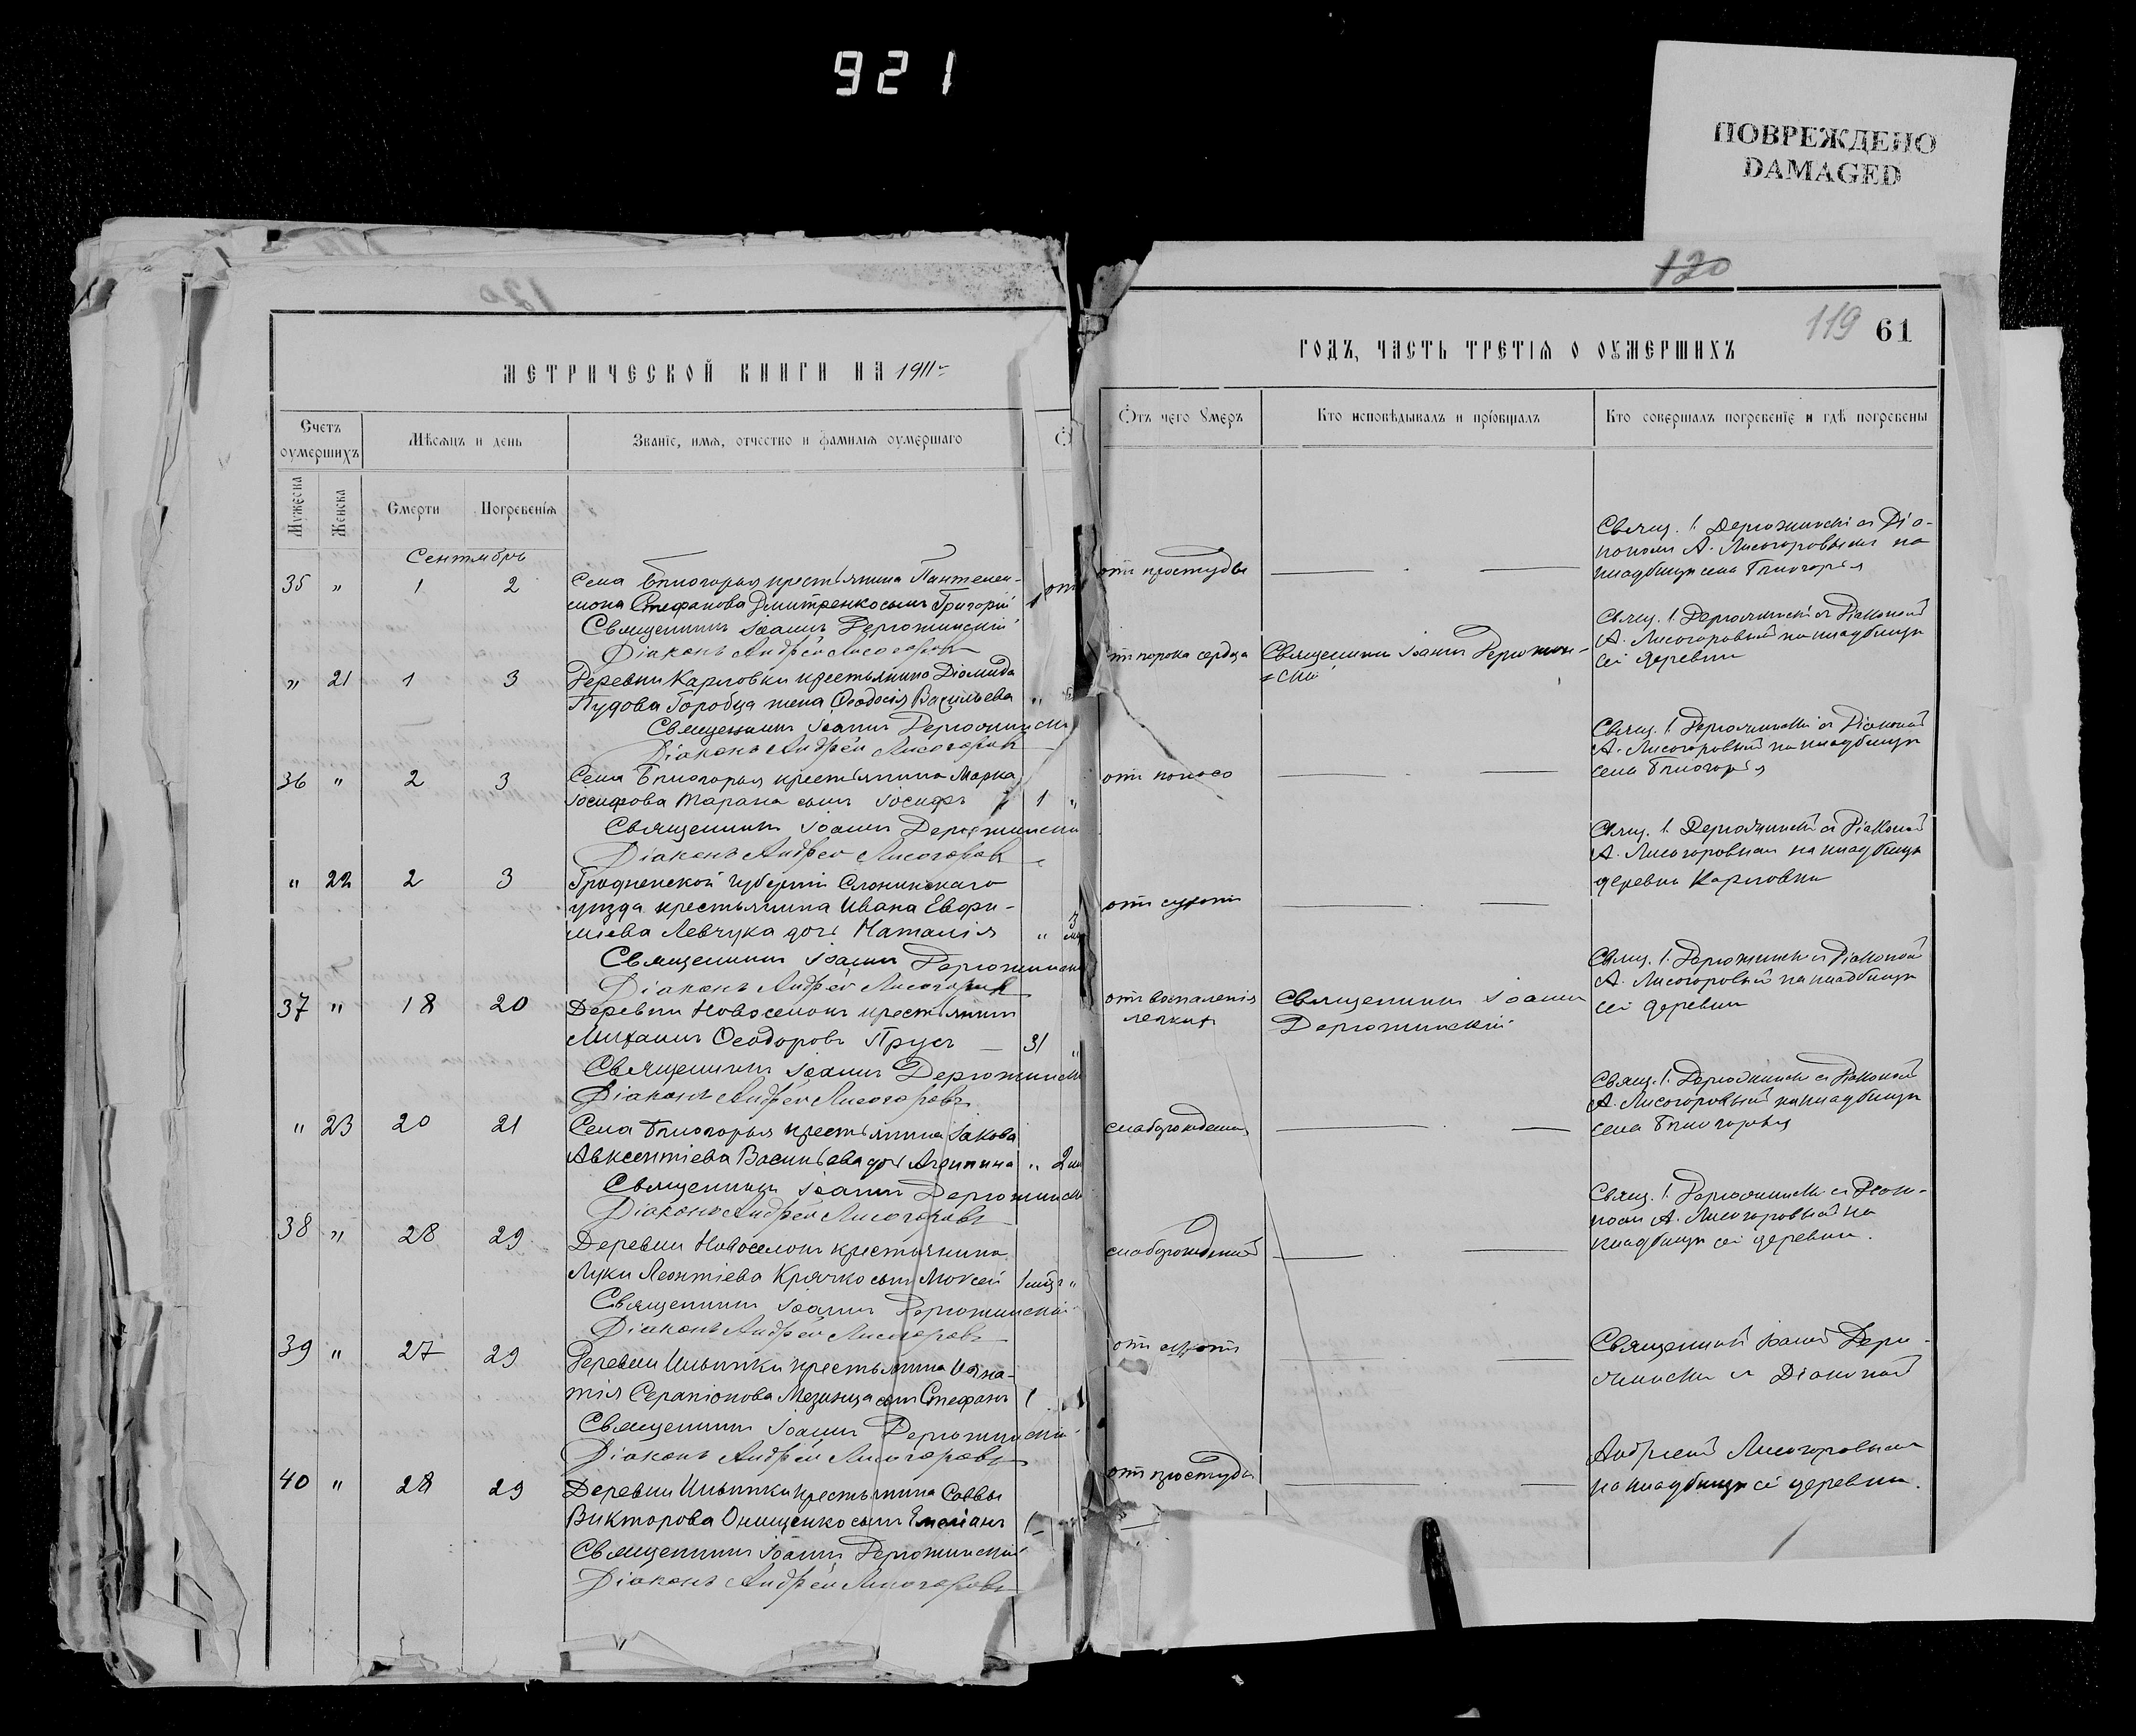 921
ПОВРЕЖДЕНО
DAMAGED
120
119
61
МЕТРИЧЕСКОЙ КНИГИ НА 1911 г
ГОДЪ, ЧАСТЬ ТРЕТІѦ О ОУМЕРШИХЪ
Счетъ оумершихъ
Мѣсяцъ и день
Званіе, имя, отчество и фамилія оумершаго
Мужеска
Женска
Смерти
Погребенія
Отъ чего Умеръ
Кто исповѣдывалъ и пріобщалъ
Кто совершалъ погребеніе и гдѣ погребены
Сентябрь
35 " 1 2
Села Бѣлогорья крестьянина Пантелеи-
мона Стефанова Дмитренко сынъ Григорій 1
Священникъ Іоаннъ Дерюжинскій
Діаконъ Андрей Лисогоровъ
от простуды
Свящ. І. Дерюжинскій съ Діа-
кономъ А. Лисогоровымъ на
кладбищѣ села Бѣлогорья
" 21 1 3
Деревни Карловки крестьянина Діомида
Пудова Горобца жена Ѳеодосія Васильева "
Священникъ Іоаннъ Дерюжинскій
Діаконъ Андрей Лисогоровъ
от порока сердца
Священникъ Іоаннъ Дерюжин-
скій
Свящ. І. Дерюжинскій съ Діакономъ
А. Лисогоровымъ на кладбищѣ
сей деревни
36 " 2 3
Села Бѣлогорья крестьянина Марка
Іосифова Тарана сынъ Іосифъ 1 "
Священникъ Іоаннъ Дерюжинскій
Діаконъ Андрей Лисогоровъ
от поноса
Свящ. І. Дерюжинскій съ Діакономъ
А. Лисогоровымъ на кладбищѣ
села Бѣлогорья
" 22 2 3
Гродненской губерніи Слонимскаго
уѣзда крестьянина Ивана Евфи-
міева Левчука дочь Наталія " 3
Священникъ Іоаннъ Дерюжинскій
Діаконъ Андрей Лисогоровъ
от сухоты
Свящ. І. Дерюжинскій съ Діакономъ
А. Лисогоровымъ на кладбищѣ
деревни Карловки
37 " 18 20
Деревни Новоселокъ крестьянинъ
Михаилъ Ѳеодоровъ Прусъ 31 "
Священникъ Іоаннъ Дерюжинскій
Діаконъ Андрей Лисогоровъ
от воспаленія
легкихъ
Священникъ Іоаннъ
Дерюжинскій
Свящ. І. Дерюжинскій съ Діакономъ
А. Лисогоровымъ на кладбищѣ
сей деревни
" 23 20 21
Села Бѣлогорья крестьянина Іакова
Авксентіева Васильева дочь Агрипина " 2
Священникъ Іоаннъ Дерюжинскій
Діаконъ Андрей Лисогоровъ
слаборожденія
Свящ. І. Дерюжинскій съ Діакономъ
А. Лисогоровымъ на кладбищѣ
села Бѣлогорья
38 " 28 29
Деревни Новоселокъ крестьянина
Луки Леонтіева Крячко сынъ Моисей 1 мѣс "
Священникъ Іоаннъ Дерюжинскій
Діаконъ Андрей Лисогоровъ
слаборожденій
Свящ. І. Дерюжинскій съ Діако-
номъ А. Лисогоровымъ на
кладбищѣ сей деревни.
39 " 27 29
Деревни крестьянина Игна-
тія Серапіонова Мезинца сынъ Стефанъ 1
Священникъ Іоаннъ Дерюжинскій
Діаконъ Андрей Лисогоровъ
от сухоты
Священникъ Іоаннъ Дерю-
жинскій съ Діакономъ
40 " 28 29
Деревни крестьянина Саввы
Викторова Онищенко сынъ Емеліанъ 1
Священникъ Іоаннъ Дерюжинскій
Діаконъ Андрей Лисогоровъ
от простуды
Андреемъ Лисогоровымъ
на кладбищѣ сей деревни.